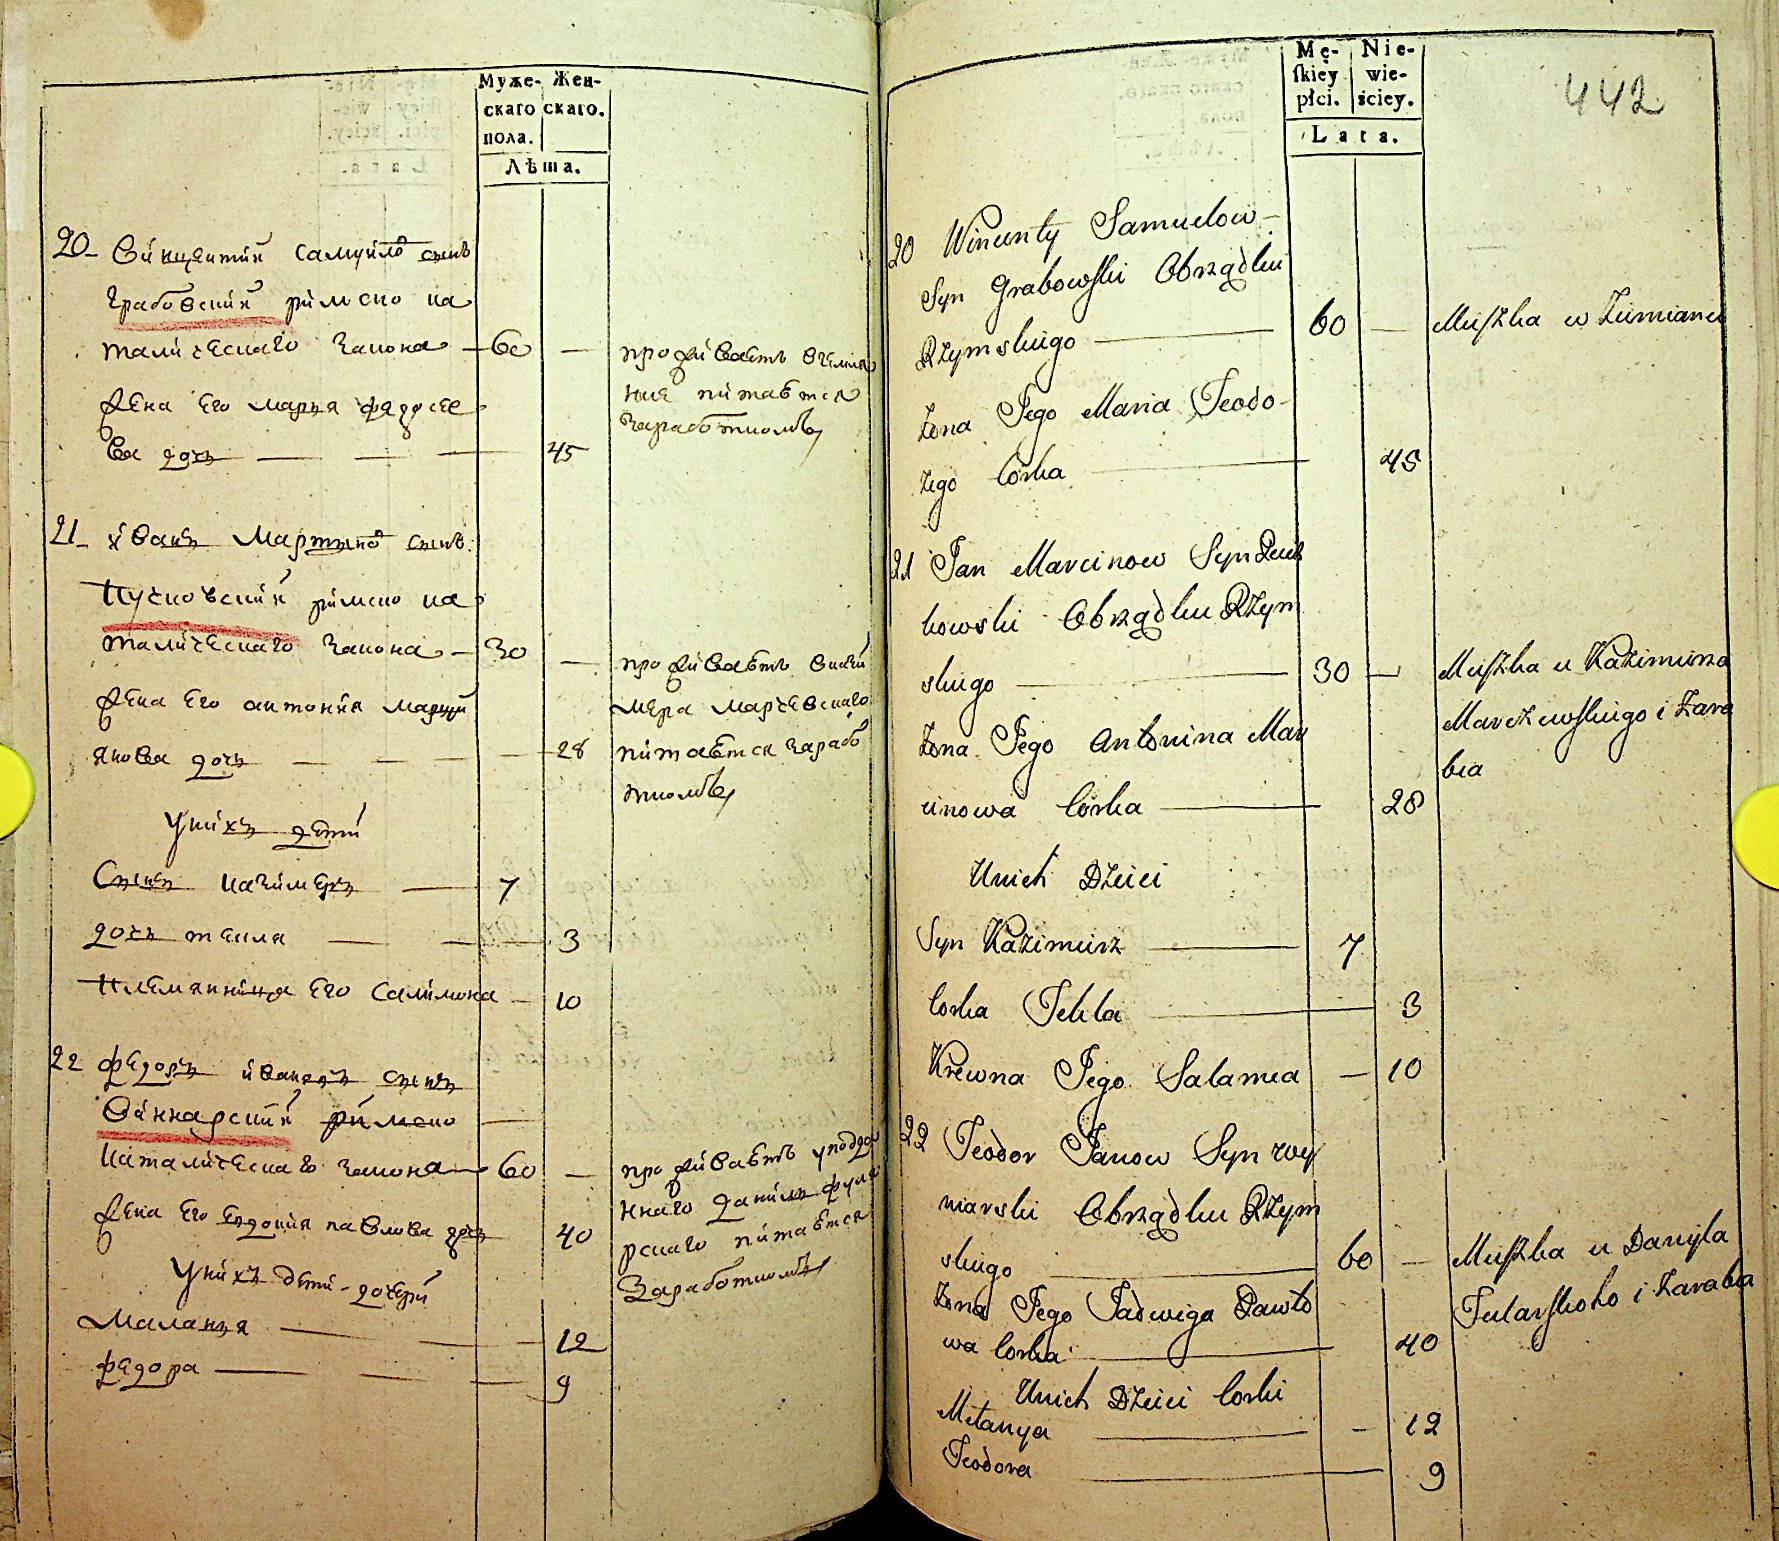 Муже- Жен-
скаго скаго.
пола.
Лѣта.
20 Викцентий Самуйло сынъ
Грабовский римско ка
талическаго закона — 60 —
проживаетъ вземля
нке питается
заработкомъ
жена его марья федосее
ва дочь — — — 45
21 Иванъ Мартыно сынъ
Пучковский римско ка
талическаго закона — 30 —
проживаетъ вкази
мера марчевскаго
питается зарабо
ткомъ
жена его антония марци
янова дочь — — — 28
Уних дети
Сынъ казимеръ — 7
дочь текля — — 3
Племянница его Салимона — 10
22 федоръ ивановъ сынъ
Виннарский римско —
каталическаго закона — 60 —
проживаетъ уподда
ннаго данилы фуля
рскаго питается
Заработкомъ
жена его евдокия павлова дочь 40
Уних дети дочери
Маланья — — 12
федора — — — 9
Mę- Nie-
ſkiey wie-
płci. ściey.
Lata.
442
20 Wincenty Samuelow
Syn Grabowſki Obrządku
Rzymskiego — 60 — Mieſzka w Ziemiance
Żona Jego Maria Teodo-
zego Corka — 45
21 Jan Marcinow Syn Pucz
kowski Obrządku Rzym
skiego — 30 — Mieſzka u Kazimierza
Marczewſkiego i Zara
bia
Żona Jego Antonina Mar
cinowa Corka — 28
Unich Dzieci
Syn Kazimierz — 7
Corka Tekla — 3
Krewna Jego Salamea — 10
22 Teodor Janow Syn Wy
niarski Obrządku Rzym
skiego — 60 — Mieſzka u Danyła
Fularſkoho i Zarabia
Żona Jego Jadwiga Pawło
wa Corka — 40
Unich Dzieci Corki
Mełanya — — 12
Teodora — 9